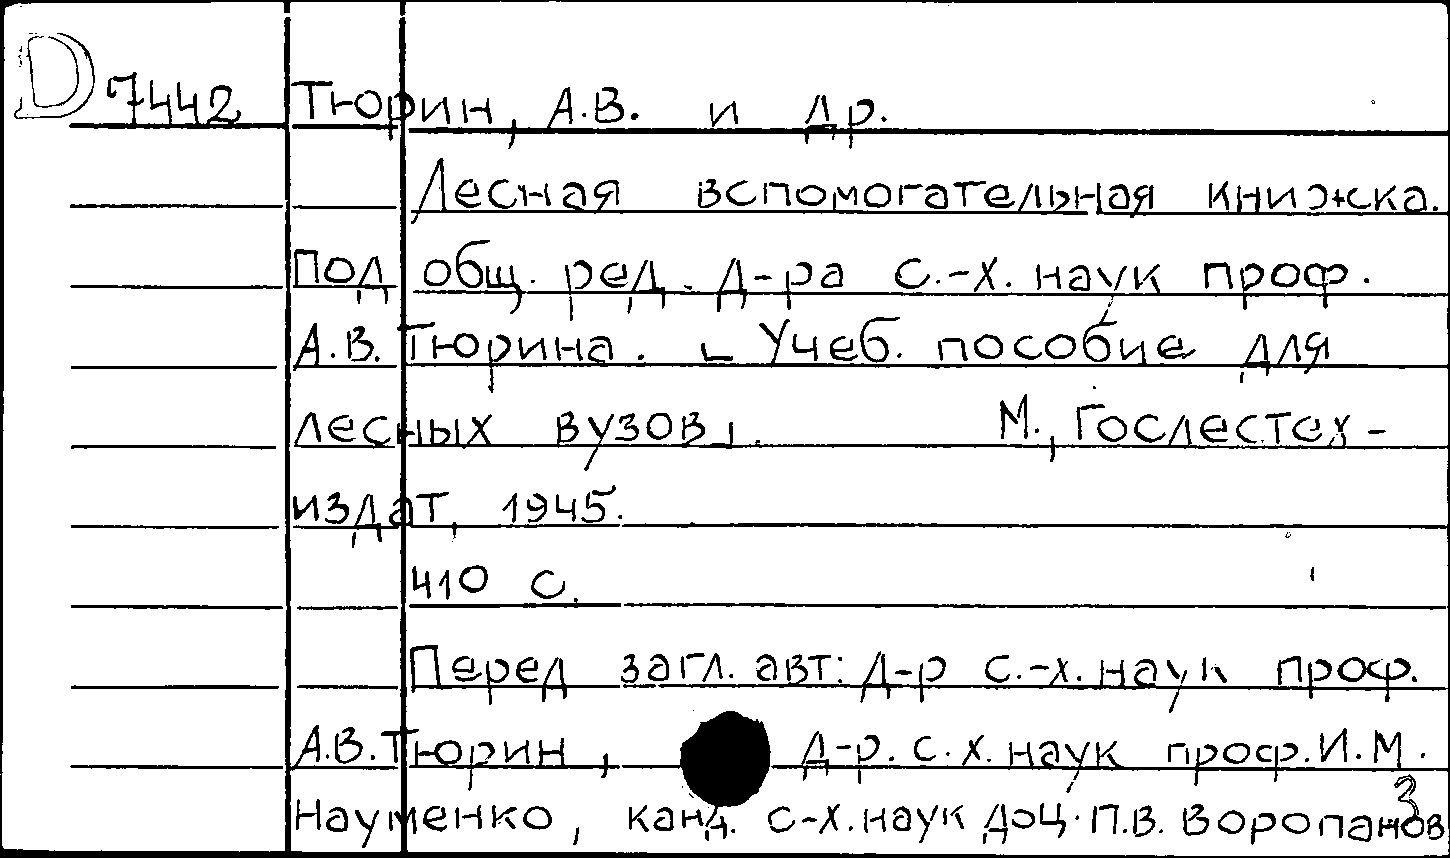 D 7442 Тюрин, А.В. и др.
Лесная вспомогательная книжка.
Под общ. ред. д-ра с.-х. наук проф.
А.В. Тюрина. - Учеб. пособие для
лесных вузов. М., Гослестех-
издат, 1945.
410 с.
Перед загл. авт: д-р с.-х. наук проф.
А.В. Тюрин, д-р. с.х. наук проф. И.М.
Науменко, канд. с-х. наук доц. П.В. Воропанов
3